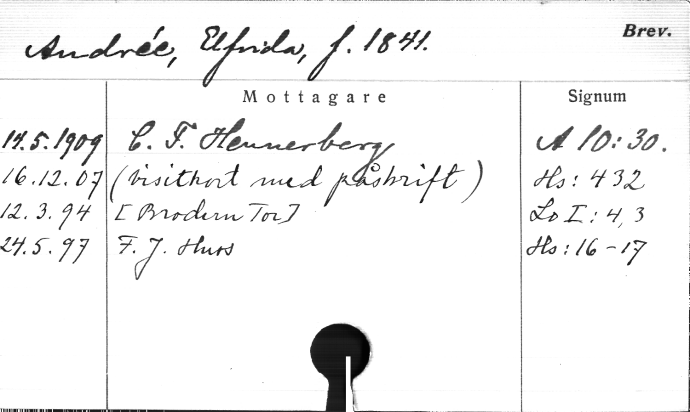 Andrée, Elfrida, f. 1841.
Brev.
Mottagare Signum
14.5.1909 C. F. Hennerberg A 10:30.
16.12.07 (visitkort med påskrift) Hs: 432
12.3.94 [Brodern Tor] Lo I: 4, 3
24.5.97 F. J. Huss Hs: 16-17